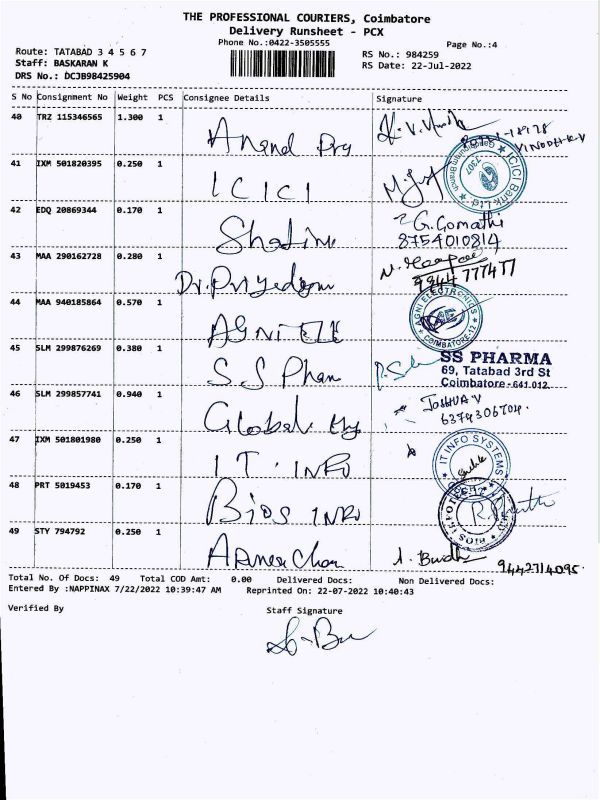 THE PROFESSIONAL COURIERS, Coimbatore
Delivery Runsheet - PCX
Phone No.:0422-3505555
Page No.:4
Route: TATABAD 3 4 5 6 7
RS No.: 984259
Staff: BASKARAN K
RS Date: 22-Jul-2022
DRS No.: DCJB98425904
S No Consignment No Weight PCS Consignee Details Signature
40 TRZ 115346565 1.300 1 Anand
VINODH.K.V
41 IXM 501820395 0.250 1 ICICI
ICICI Bank Ltd.
7307
42 EDQ 20869344 0.170 1 Shalini G. Gomathi
8754010814
43 MAA 290162728 0.280 1
9944 777477
44 MAA 940185864 0.570 1 AGNI ELE
AGNI ELECTRONICS
AE
COIMBATORE-12
45 SLM 299876269 0.380 1 S.S Pham
SS PHARMA
69, Tatabad 3rd St
Coimbatore - 641 012.
46 SLM 299857741 0.940 1 Global JOSHUA V
6379306704.
47 IXM 501801980 0.250 1 IT. INFO
IT INFO SYSTEMS
48 PRT 5019453 0.170 1 BIOS INFO
BIOS INFOTECH
49 STY 794792 0.250 1
9442714095.
Total No. Of Docs: 49 Total COD Amt: 0.00 Delivered Docs: Non Delivered Docs:
Entered By :NAPPINAX 7/22/2022 10:39:47 AM Reprinted On: 22-07-2022 10:40:43
Verified By Staff Signature